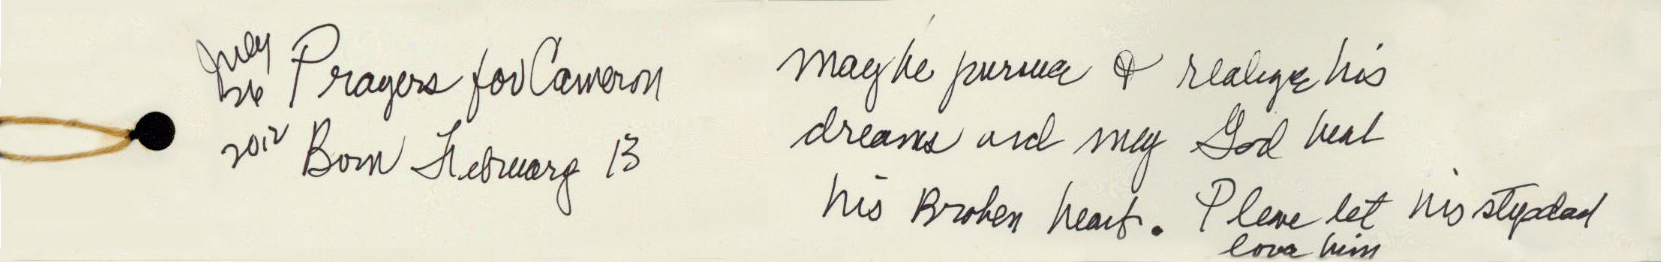 July
26
2012
Prayers for Cameron
Born February 13
may he pursue & realize his
dreams and may God heal
his Broken heart. Please let his stepdad
love him